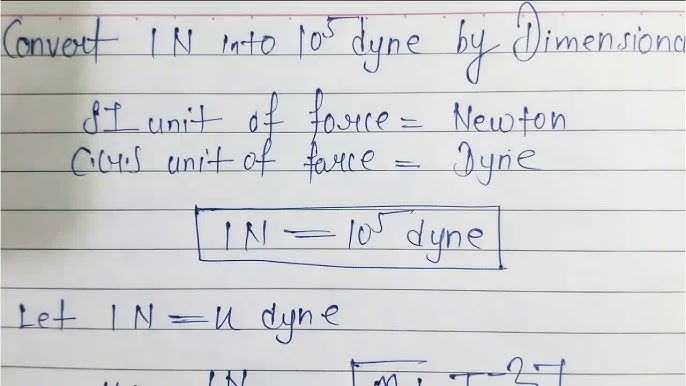 Convert 1N into 10⁵ dyne by Dimensiona
SI unit of force = Newton
C.G.S unit of farce = Dyne
1N = 10⁵ dyne
Let 1N = u dyne
1N